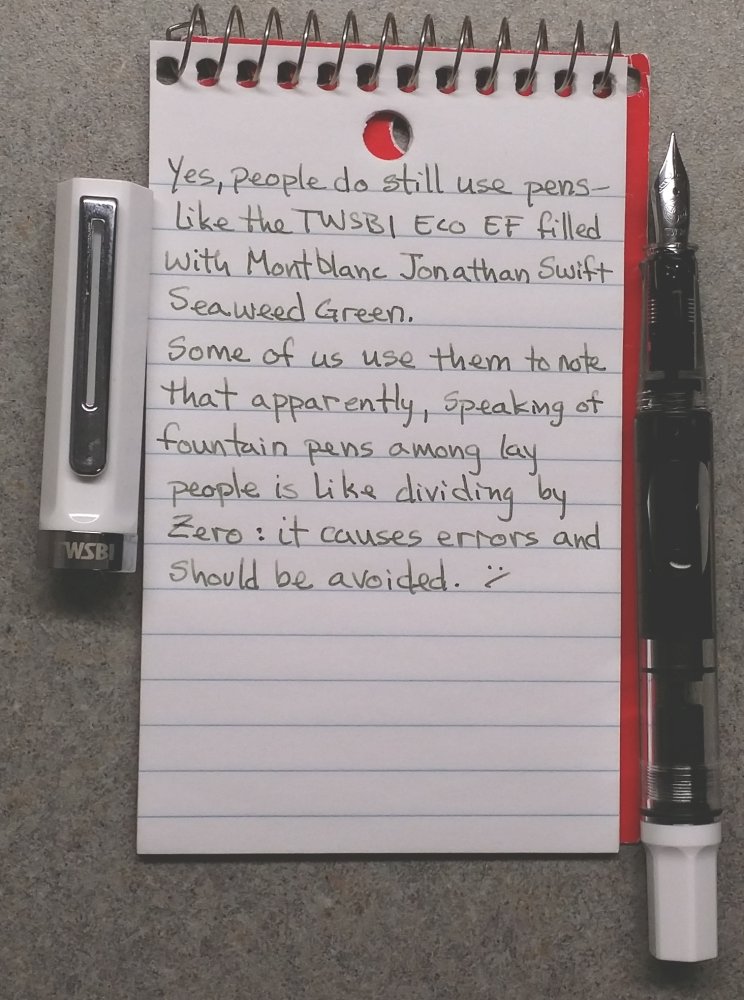 Yes, people do still use pens-
like the TWSBI Eco EF filled
with Montblanc Jonathan Swift
Seaweed Green.
Some of us use them to note
that apparently, speaking of
fountain pens among lay
people is like dividing by
Zero: it causes errors and
should be avoided. :-/
TWSBI